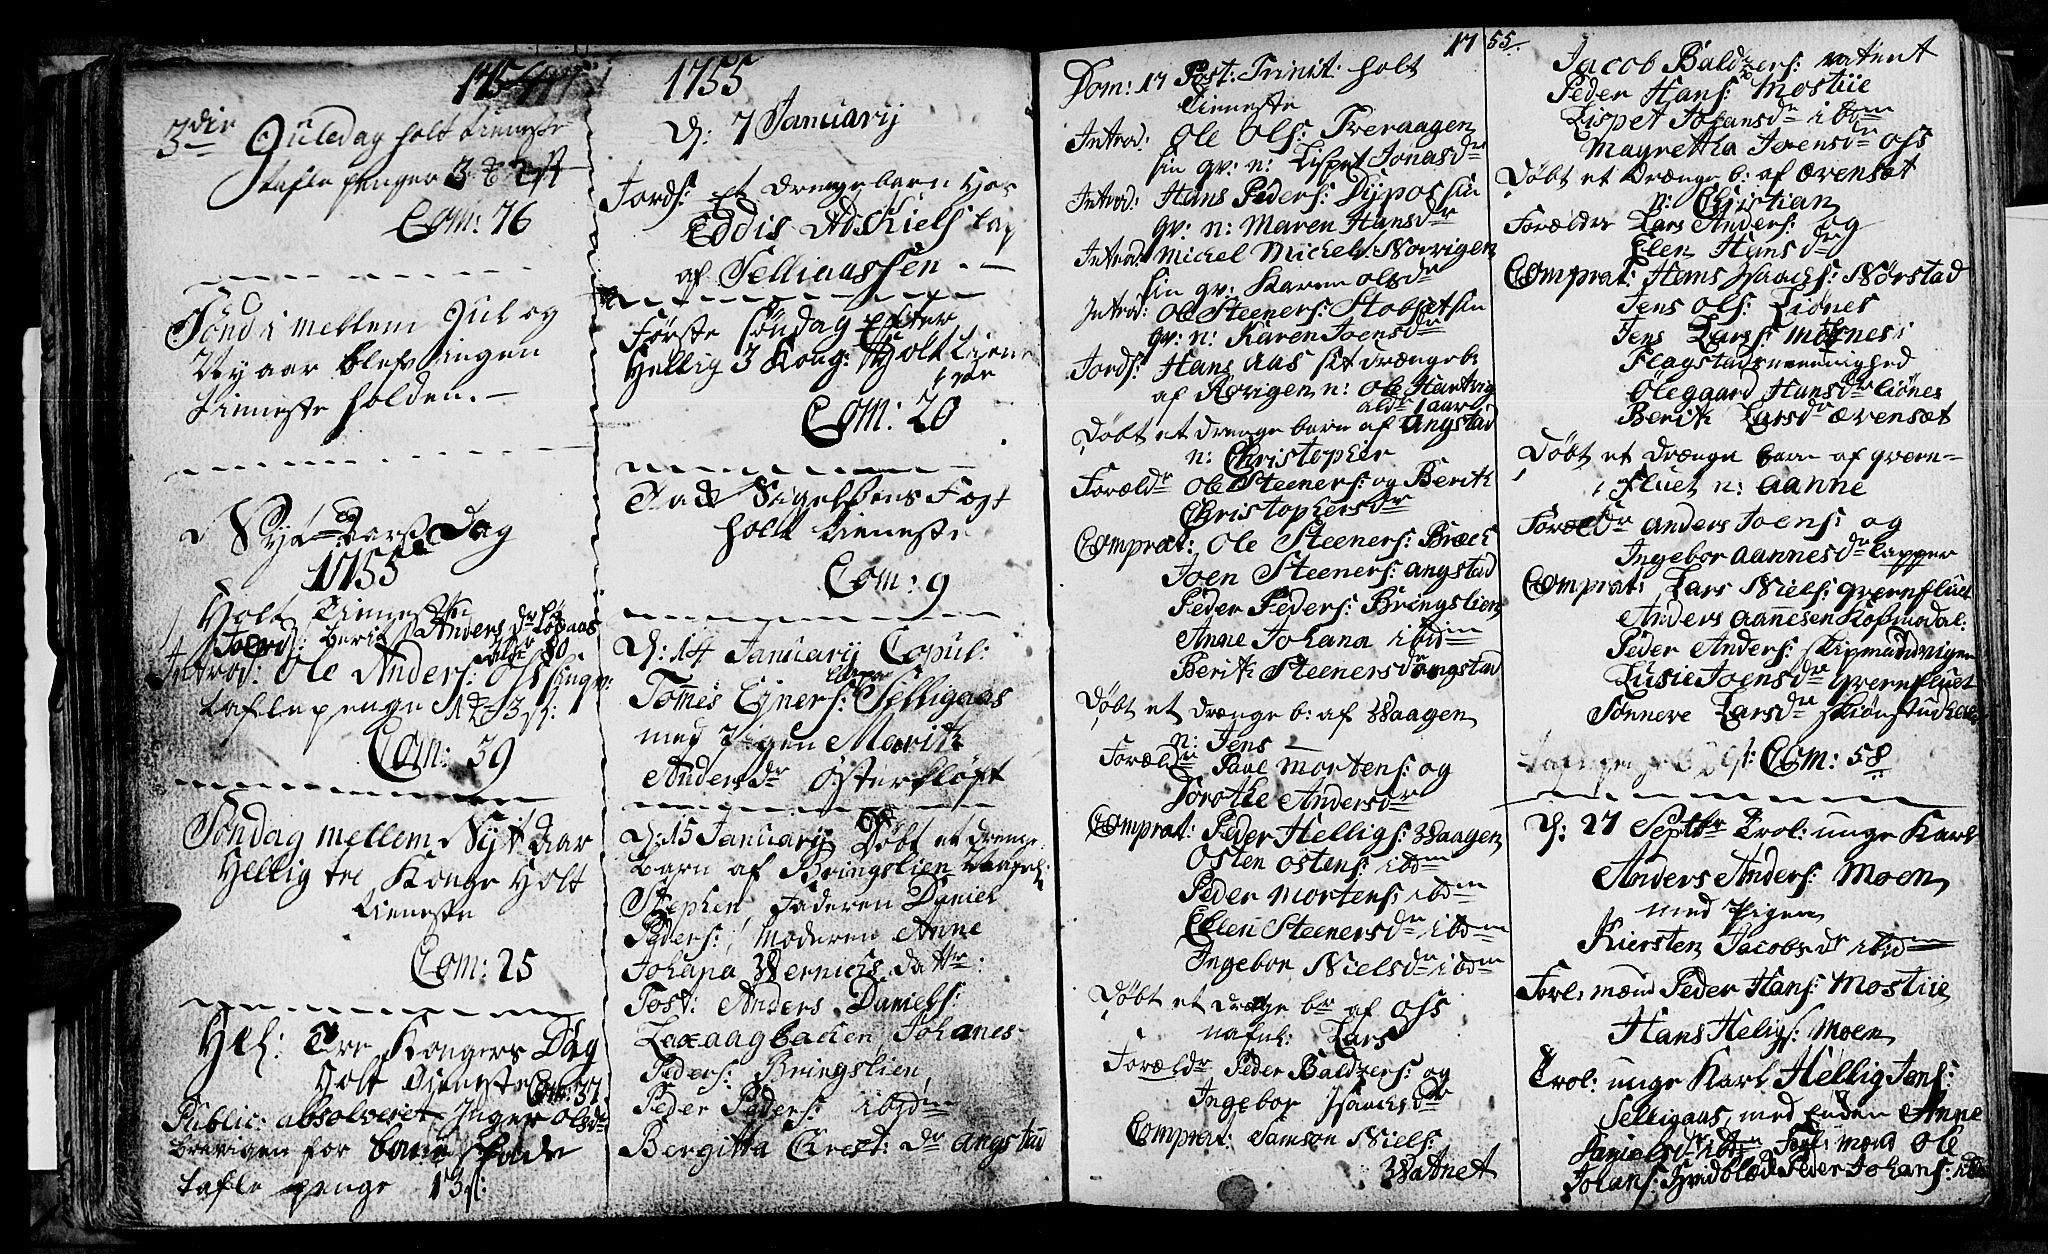 3die Juledag holt tieneste
tafle penger 3
Com: 76
Sönd: mellem Jul og
Nyaar blef ingen
tieneste holden.
Nyt Aars Dag
1755
Holt Tieneste
Jord: Berit Anders dr
alder 80
Introd: Ole Anders: Oss
tafle penge 3 s:
Com: 39
Söndag mellem Nyt Aar
Hellig tre Konge Holt
tieneste
Com: 25
Hel: Tre Kongers Dag
Holt Tieneste
Com: 37
Public: absolveret Inger Ols dr
for
tafle penge 13 s:
1755
D: 7 January
Jords: Et drenge barn hos
Eddis Adskiels Lap
af Selliaassen.
Förste söndag efter
Hellig 3 Kong: Holt tiene
Com: 20
holt tieneste
Com: 9
D: 14 January Copul:
Tomes Ejners: Selligaas
med Pigen Marith
Anders dr Österkløft
D: 15 January Döbt et drenge
barn af Bringslien
Stephen, Faderen Daniel
Peders: Moderen Anne
Johana Wernichs datter:
Test: Anders Daniels:
Laxaagbacken, Johanes
Peders: Bringslien
Peder Peders: ibidm
Bergitta Crest: dr Angstad
1755.
Dom: 17 Post: Trinit: holt
tieneste
Introd: Ole Ols: Tveraagen
sin qv: n: Lispet Jonas dr
Introd: Hans Peders: Dÿpos sin
qv: n: Maren Hans dr
Introd: Michel Michels: Norvigen
sin qv: Karen Ols dr
Introd: Ole Steeners: Stobset sin
qv: n: Karen Joens dr
Jords: Hans Aas sit drængeb:
af Rovigen n: Ole Hartvig
ald: 1 aar
Döbt et drenge barn af Angstad
n: Christopher
Foreld: Ole Steeners: og Berith
Christophers dr
Comprat: Ole Steeners: Bræck
Joen Steeners: Angstad
Peder Peders: Bringslien
Anne Johana ibidm
Berith Steeners dr Angstad
Döbt et drænge b: af Waagen
n: Jens
Foræld: Paul Mortens: og
Dorothe Anders dr
Comprat: Peder Helligs: Waagen
Osten Ostens: ibdm
Peder Mortens: ibdm
Elen Steeners dr ibdm
Ingebor Niels dr ibdm
Döbt et drænge br af Oss
nafnl: Lars
Foræld: Peder Baldzers: og
Ingebor Isachs dr
Comprat: Samson Niels:
Watnet
Jacob Baldzers: Vatnet
Peder Hans: Mostiie
Lispet Johans dr ibdm
Magretha Jorens dr Oss
Döbt et drænge b: af Ævenset
n: Christian
Forælder Lars Anders: og
Elen Hans dr
Comprat: Hans Isaachs: Nörstad
Jens Ols: Liönes
Jens Lars: Mornes:
Olegaard Hans dr Liönes
Berith Lars dr Ævenset
Döbt et drænge barn af Qvern-
fluet n: Aanne
Foræld: Anders Joens: og
Ingebor Aannes dr Lapper
Comprat: Lars Niels: Qvernfluet
Anders Aannesen Kosmodal:
Peder Anders:
Lusie Joens dr Qvernfluet
Sonneve Lars dr
Com: 58
D: 27 Septbr Trol: unge Karl
Anders Anders: Moen
med Pigen
Kiersten Jacobs dr ibid
Forl: mænd Peder Hans: Mostiie
Hans Heligs: Moen
Trol: unge Karl Hellig Jens:
Selligaas med Enden Anne
Daniels dr ibdm Forl: mænd Ole
Johans: Peder Johans: